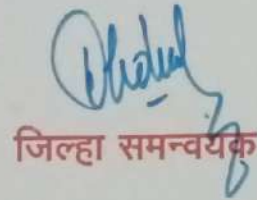 जिल्हा समन्वयक